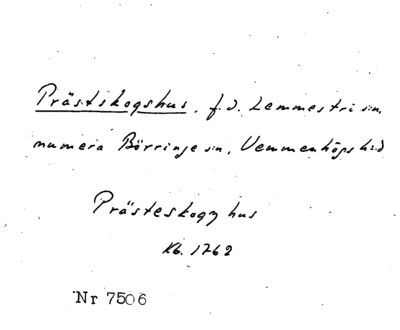 Prästskogshus, f.d. Lemmestri sn.
numera Börringe sn, Vemmenhögs hd
Prästeskogz hus
Kb. 1762
Nr 7506